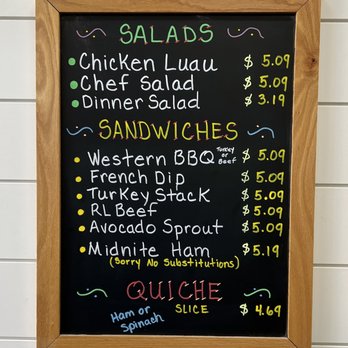 SALADS
Chicken Luau $ 5.09
Chef Salad $ 5.09
Dinner Salad $ 3.19
SANDWICHES
Western BBQ Turkey or Beef $ 5.09
French Dip $ 5.09
Turkey Stack $ 5.09
RL Beef $ 5.09
Avocado Sprout $ 5.09
Midnite Ham $ 5.19
(Sorry No Substitutions)
QUICHE
Ham or Spinach SLICE $ 4.69